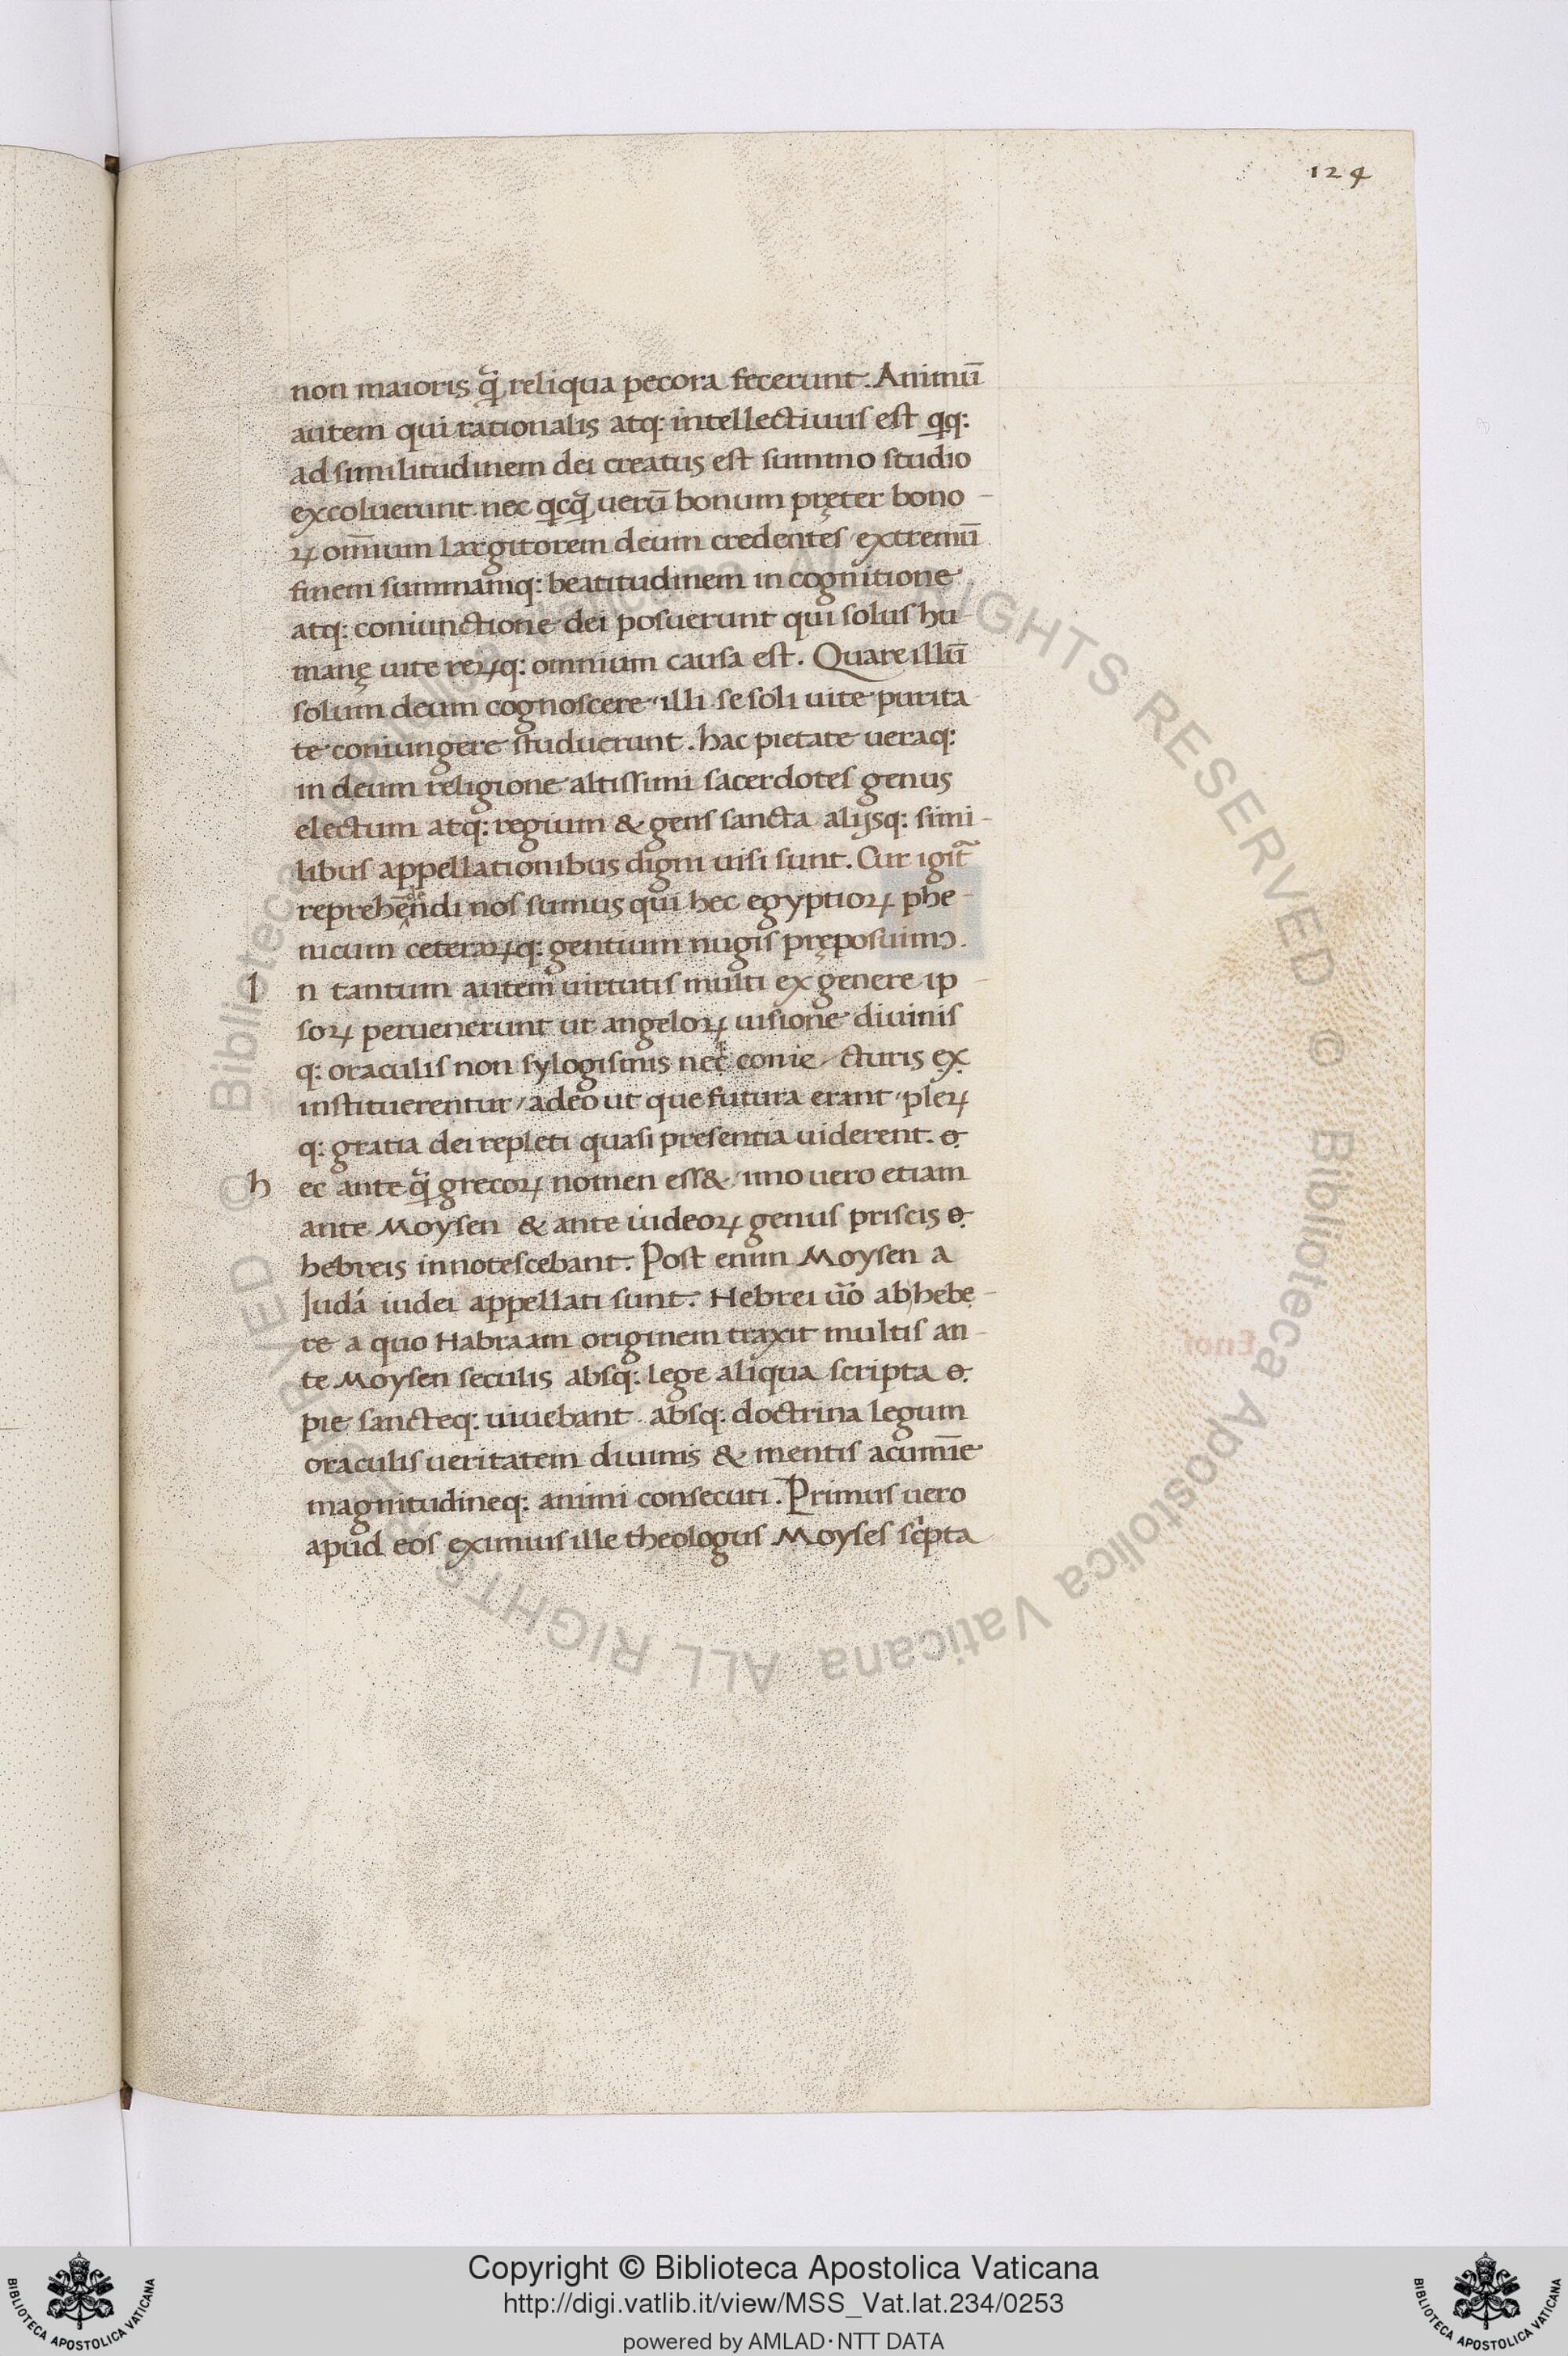 124
non maioris q̃ reliqua pecora fecerunt. Animū
autem qui rationalis atq: intellectiuus est qq:
ad similitudinem dei creatus est summo studio
excoluerunt nec qcq̃ uerū bonum pręter bono-
ꝝ om̄ium largitorem deum credentes extremū
finem summamq: beatitudinem in cognitione
atq: coniunctione dei posuerunt qui solus hu-
manę uite reꝝq: omnium causa est. Quare illū
solum deum cognoscere illi se soli uite purita
te coniungere studuerunt. hac pietate ueraq:
in deum religione altissimi sacerdotes genus
electum atq: regium & gens sancta alijsq: simi-
libus appellationibus digni uisi sunt. Cur igit᷑
reprehēndi nos sumus qui hec egyptioꝝ phe-
nicum ceteraꝝq: gentium nugis pręposuimꝰ.
I n tantum autem uirtutis multi ex genere ip-
soꝝ peruenerunt ut angeloꝝ uisione diuinis
q: oraculis non sylogismis nec conie cturis ex
instituerentur adeo ut que futura erant pleꝝ
q: gratia dei repleti quasi presentia uiderent. &
h ec ante q̃ grecoꝝ nomen ess& imo uero etiam
ante Moysen & ante iudeoꝝ genus priscis &
hebreis innotescebant. Post enim Moysen a
Iudá iudei appellati sunt. Hebrei ūo ab hebe-
re a quo Habraam originem traxit multis an-
te Moysen seculis absq: lege aliqua scripta &
pie sancteq: uiuebant absq: doctrina legum
oraculis ueritatem diuinis & mentis acumīe
magnitudineq: animi consecuti. Primus uero
apud eos eximius ille theologus Moyses sc̓pta
Copyright © Biblioteca Apostolica Vaticana
http://digi.vatlib.it/view/MSS_Vat.lat.234/0253
powered by AMLAD·NTT DATA
BIBLIOTECA APOSTOLICA VATICANA
BIBLIOTECA APOSTOLICA VATICANA
© Biblioteca Apostolica Vaticana ALL RIGHTS RESERVED © Biblioteca Apostolica Vaticana ALL RIGHTS RESERVED